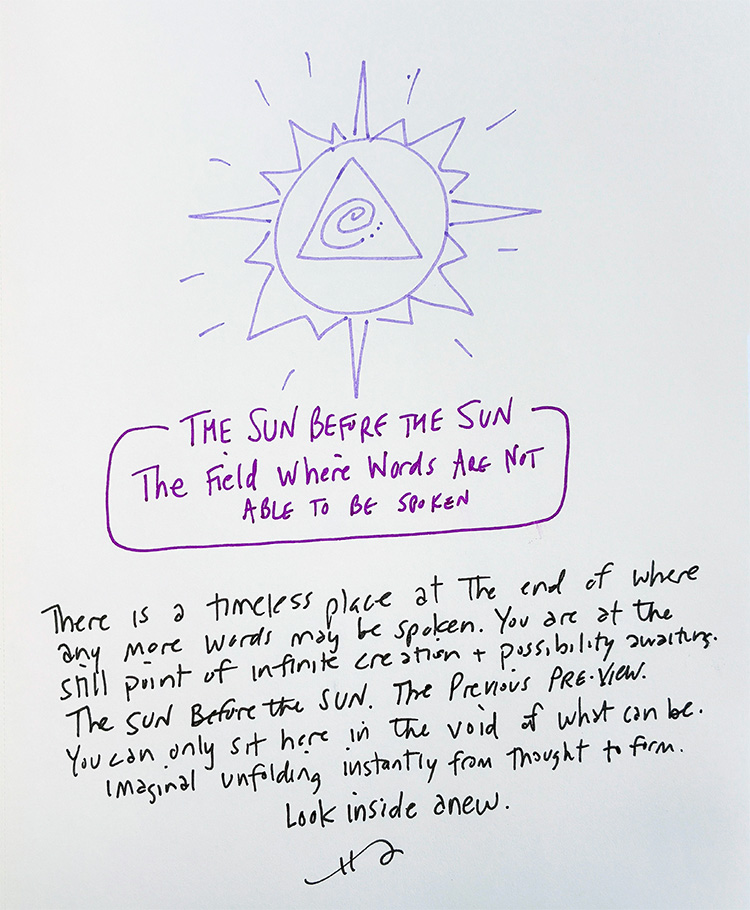 THE SUN BEFORE THE SUN
The Field Where Words ARE NOT
ABLE TO BE SPOKEN
There is a timeless place at the end of where
any more words may be spoken. You are at the
still point of infinite creation + possibility awaiting.
The SUN Before the SUN. The Previous PRE-VIEW.
You can only sit here in the void of what can be.
Imaginal unfolding instantly from thought to form.
Look inside anew.